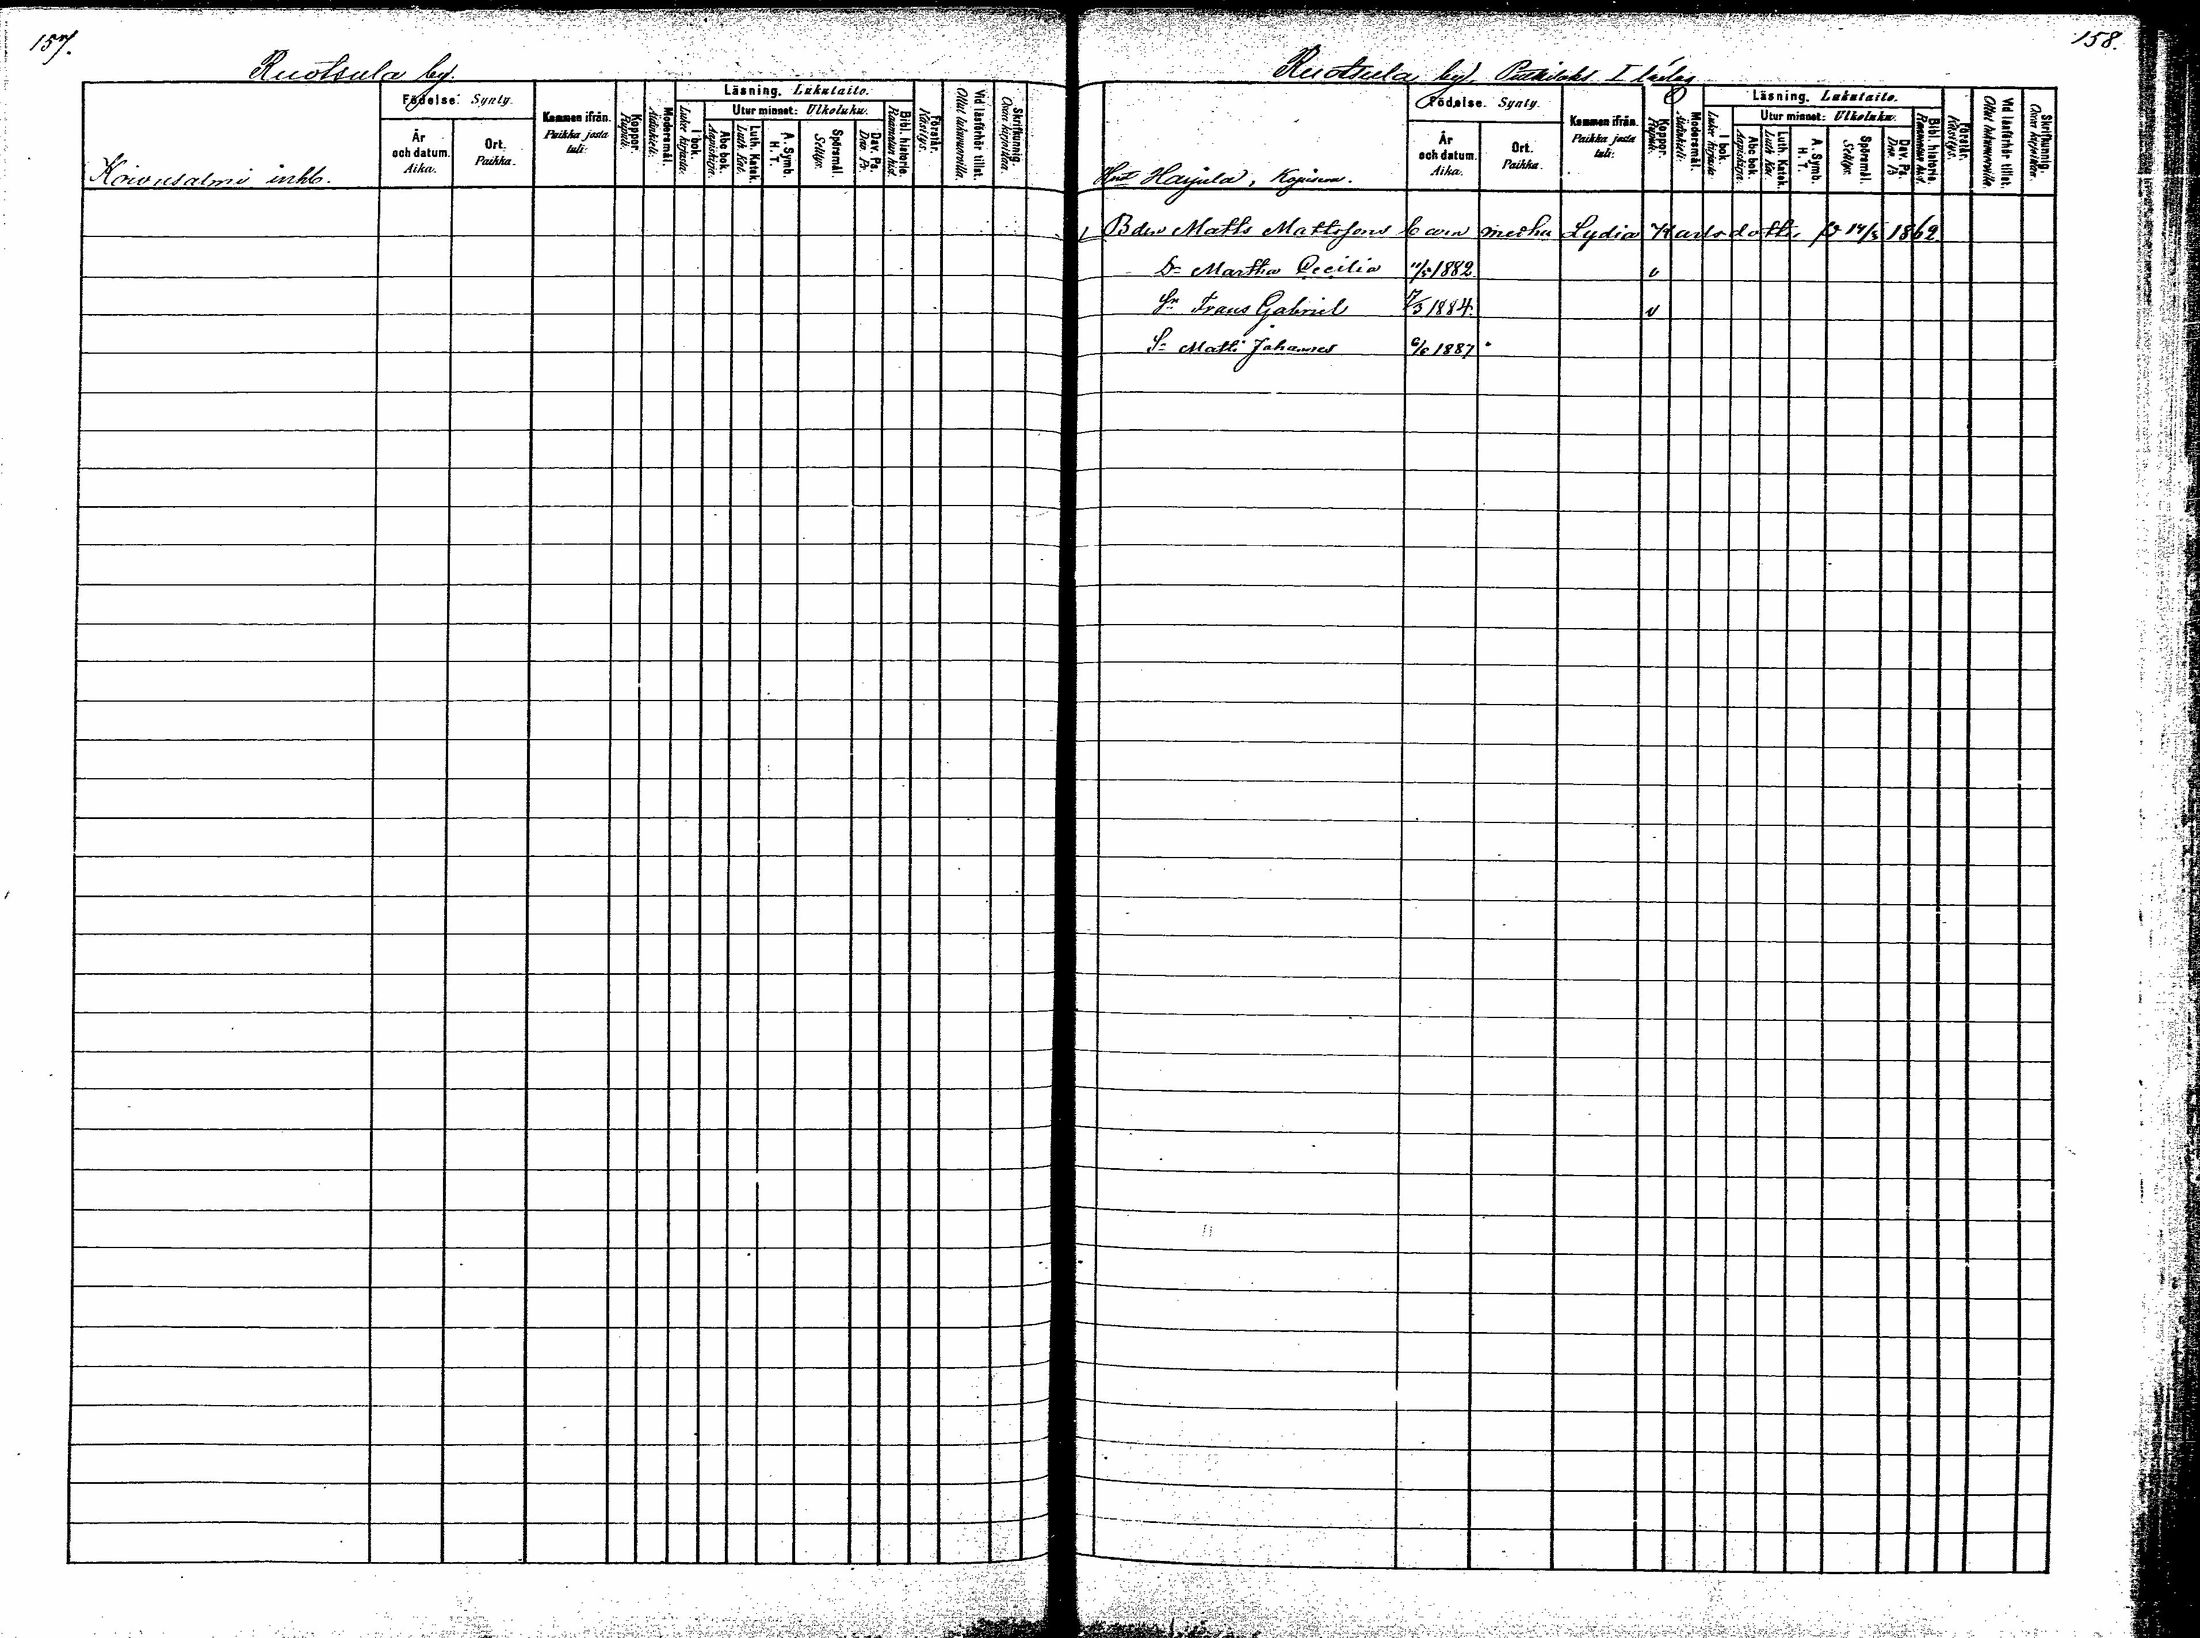 157.
Ruotsula by.
Koivusalmi inhb.
Födelse. Synty.
År och datum. Aika.
Ort. Paikka.
Kommen ifrån. Paikka josta tuli:
Koppor. Rupuli.
Modersmål. Äidinkieli.
Läsning. Lukutaito.
I bok. Lukee kirjasta.
Utur minnet: Ulkoluku.
Abc bok. Aapiskirja.
Luth. Katek. Luth. Kat.
A. Symb. H. T.
Spörsmål. Selitys.
Dav. Ps. Dav. Ps.
Bibl. historie. Raamatun hist.
Förstår. Käsitys.
Vid läsförhör tillst. Ollut lukuvuorolla.
Skrifkunnig. Osaa kirjoittaa.
158.
Ruotsula by, I
Harjula,
Födelse. Synty.
År och datum. Aika.
Ort. Paikka.
Kommen ifrån. Paikka josta tuli:
Koppor. Rupuli.
Modersmål. Äidinkieli.
Läsning. Lukutaito.
I bok. Lukee kirjasta.
Utur minnet: Ulkoluku.
Abc bok. Aapiskirja.
Luth. Katek. Luth. Kat.
A. Symb. H. T.
Spörsmål. Selitys.
Dav. Ps. Dav. Ps
Bibl. historie. Raamatun hist.
Förstår. Käsitys.
Vid läsförhör tillst. Ollut lukuvuorolla.
Skrifkunnig. Osaa kirjoittaa.
1 Bden Matts Mattssons barn med hu Lydia Karlsdotter, 1862.
Dr Martha Cecilia 11/5 1882 v
Sn Frans Gabriel 7/3 1884. v
Sn Matti Johannes 6/6 1887